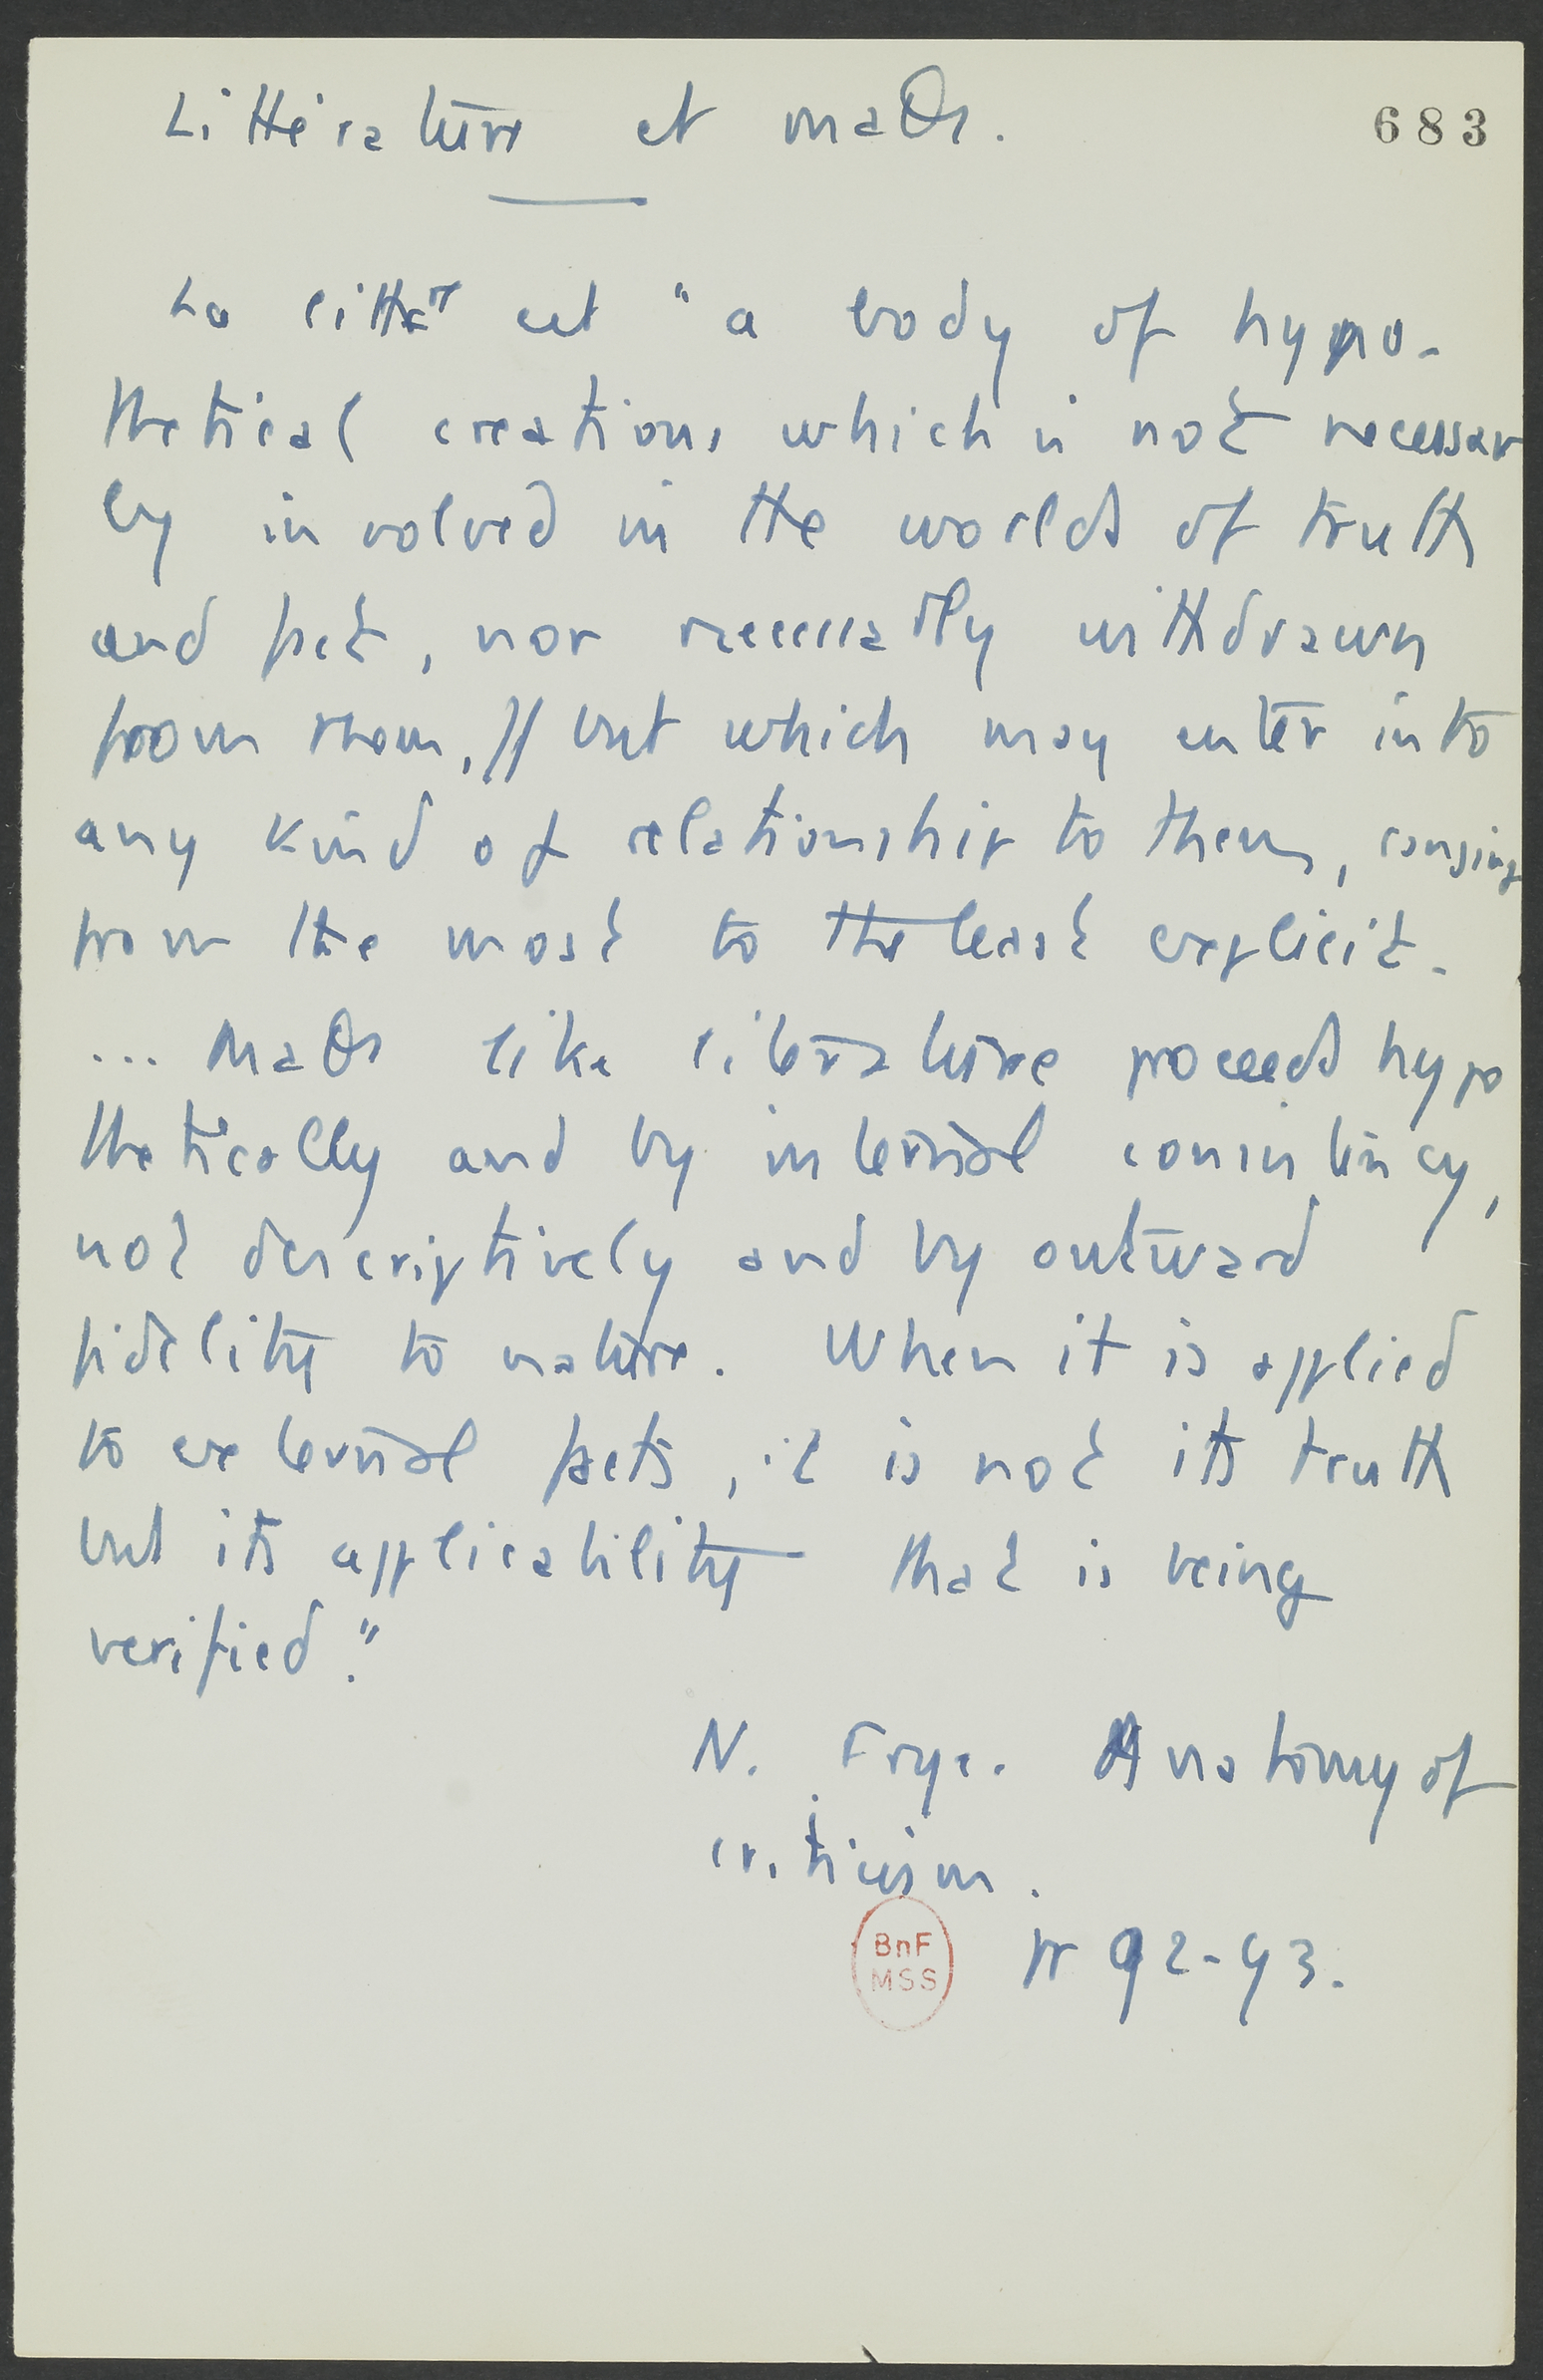 Littérature et maths.
683
La litt^re est "a body of hypo-
thetical creations which is not necessar
ly involved in the worlds of truth
and fact, nor necessarily withdrawn
from them, // but which may enter into
any kind of relationship to them, ranging
from the most to the least explicit.
... Maths like literature proceeds hypo
thetically and by internal consistency,
not descriptively and by outward
fidelity to nature. When it is applied
to external facts, it is not its truth
but its applicability that is being
verified."
N. Frye. Anatomy of
criticism.
BnF
MSS
pp 92-93.